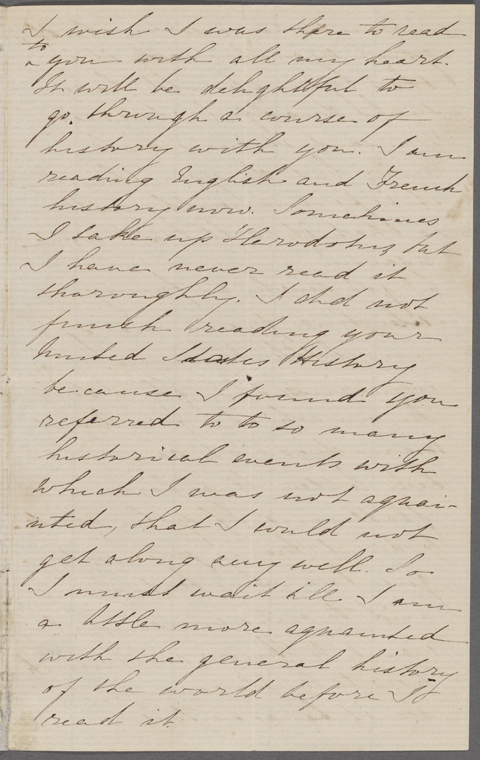 I wish I was there to read
to
you with all my heart.
It will be delightful to
go through a course of
history with you. I am
reading English and French
history now. Sometimes
I take up Herodotus, but
I have never read it
thoroughly. I did not
finish reading your
United States History
because I found you
referred to to so many
historical events with
which I was not aquai-
nted, that I could not
get along very well. So
I must wait till I am
a little more aquainted
with the general history
of the world before I
read it.